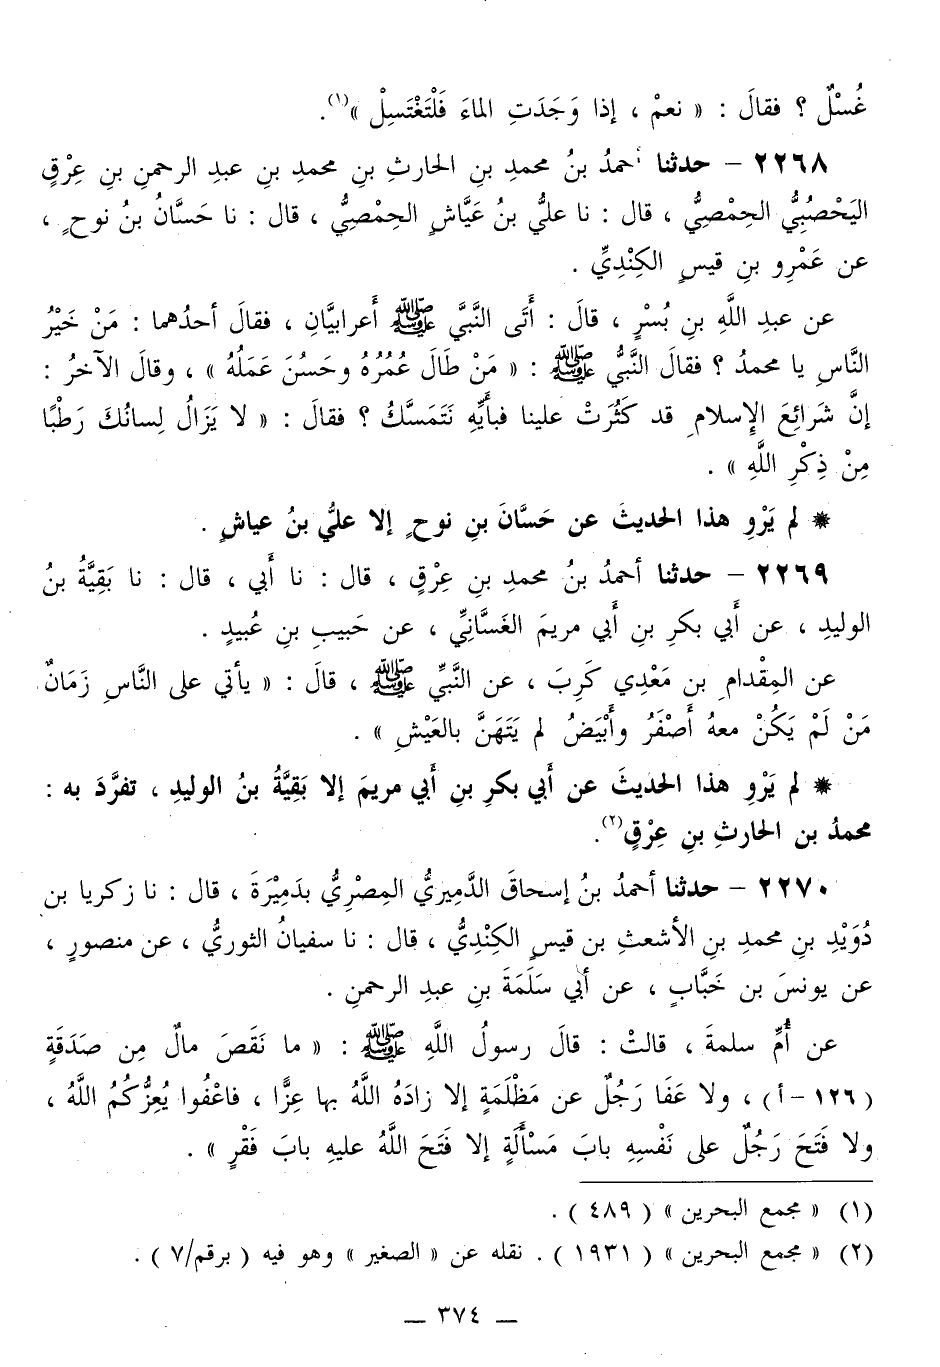 غُسْلٌ ؟ فقالَ : « نعمْ ، إذا وَجَدَتِ الماءَ فَلْتَغْتَسِلْ »(١).
٢٢٦٨ – حدثنا أحمدُ بنُ محمدِ بنِ الحارثِ بنِ محمدِ بنِ عبدِ الرحمنِ بنِ عِرْقٍ
اليَحْصُبِيُّ الحِمْصِيُّ ، قال : نا عليُّ بنُ عَيَّاشٍ الحِمْصِيُّ ، قال : نا حَسَّانُ بنُ نوحٍ ،
عن عَمْرِو بنِ قيسٍ الكِنْدِيِّ .
عن عبدِ اللَّهِ بنِ بُسْرٍ ، قالَ : أَتَى النَّبيَّ ﷺ أَعرابيَّانِ ، فقالَ أحدُهما : مَنْ خَيْرُ
النَّاسِ يا محمدُ ؟ فقالَ النَّبيُّ ﷺ : « مَنْ طَالَ عُمُرُهُ وحَسُنَ عَمَلُهُ » ، وقالَ الآخرُ :
إنَّ شَرائِعَ الإِسلامِ قد كَثُرَتْ علينا فبأَيِّهِ نَتَمَسَّكُ ؟ فقالَ : « لا يَزَالُ لِسانُكَ رَطْبًا
مِنْ ذِكْرِ اللَّهِ » .
* لم يَرْوِ هذا الحديثَ عن حَسَّانَ بنِ نوحٍ إلا عليُّ بنُ عياشٍ .
٢٢٦٩ – حدثنا أحمدُ بنُ محمدِ بنِ عِرْقٍ ، قال : نا أَبي ، قال : نا بَقِيَّةُ بنُ
الوليدِ ، عن أَبي بكرِ بنِ أَبي مريمَ الغَسَّانِيِّ ، عن حَبيبِ بنِ عُبيدٍ .
عن المِقْدامِ بنِ مَعْدِي كَرِبَ ، عن النَّبيِّ ﷺ ، قالَ : « يأتي على النَّاسِ زَمَانٌ
مَنْ لَمْ يَكُنْ معهُ أَصْفَرُ وأَبْيَضُ لم يَتَهَنَّ بالعَيْشِ » .
* لم يَرْوِ هذا الحديثَ عن أَبي بكرِ بنِ أَبي مريمَ إلا بَقِيَّةُ بنُ الوليدِ ، تفرَّدَ به :
محمدُ بن الحارثِ بنِ عِرْقٍ(٢).
٢٢٧٠ – حدثنا أحمدُ بنُ إسحاقَ الدَّميريُّ المِصْرِيُّ بدَمِيْرَةَ ، قال : نا زكريا بن
دُوَيْدِ بنِ محمدِ بنِ الأشعثِ بنِ قيسٍ الكِنْدِيُّ ، قال : نا سفيانُ الثوريُّ ، عن منصورٍ ،
عن يونسَ بنِ خَبَّابٍ ، عن أَبي سَلَمَةَ بنِ عبدِ الرحمنِ .
عن أُمِّ سلمةَ ، قالتْ : قالَ رسولُ اللَّهِ ﷺ : « ما نَقَصَ مالٌ مِن صَدَقَةٍ
(١٢٦ – أ) ، ولا عَفَا رَجُلٌ عن مَظْلَمَةٍ إلا زادَهُ اللَّهُ بها عِزًّا ، فاعْفُوا يُعِزُّكُمُ اللَّهُ ،
ولا فَتَحَ رَجُلٌ على نَفْسِهِ بابَ مَسْأَلَةٍ إلا فَتَحَ اللَّهُ عليهِ بابَ فَقْرٍ » .
(١) « مجمع البحرين » ( ٤٨٩ ) .
(٢) « مجمع البحرين » ( ١٩٣١ ) . نقله عن « الصغير » وهو فيه ( برقم/٧ ) .
— ٣٧٤ —